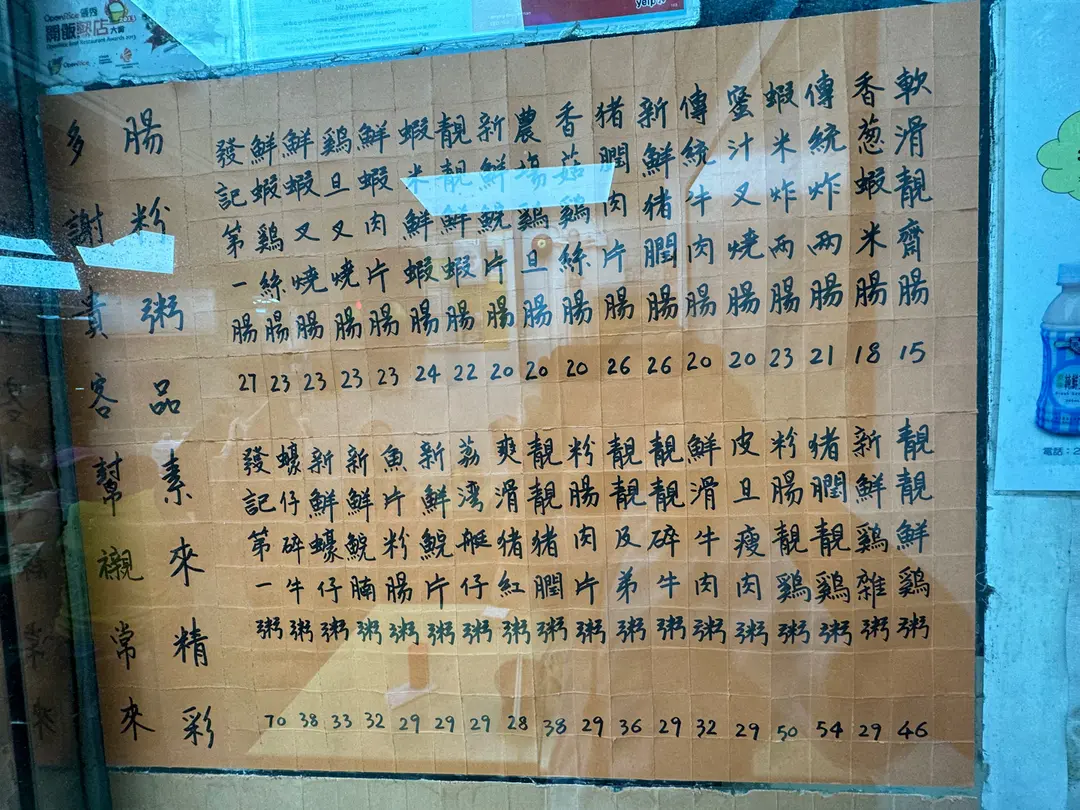 OpenRice 開飯熱店大獎
OpenRice Best Restaurant Awards 2013
biz.yelp.com
yelp
軟滑靚齋腸 15
香葱蝦米腸 18
傳統炸両腸 21
蝦米炸両腸 23
蜜汁叉燒腸 20
傳統牛肉腸 20
新鮮猪膶腸 26
猪膶肉片腸 26
香菇鷄絲腸 20
農場鷄旦腸 20
新鮮鯇片腸 20
靚靚鮮蝦腸 22
蝦米鮮蝦腸 24
鮮蝦肉片腸 23
鷄旦叉燒腸 23
鮮蝦叉燒腸 23
鮮蝦鷄絲腸 23
發記第一腸 27
靚靚鮮鷄粥 46
新鮮鷄雜粥 29
猪膶靚鷄粥 54
粉腸靚鷄粥 50
皮旦瘦肉粥 29
鮮滑牛肉粥 32
靚靚碎牛粥 29
靚靚及弟粥 36
粉腸肉片粥 29
靚靚猪膶粥 38
爽滑猪紅粥 28
荔湾艇仔粥 29
新鮮鯇片粥 29
魚片粉腸粥 29
新鮮鯇腩粥 32
新鮮蠔仔粥 33
蠔仔碎牛粥 38
發記第一粥 70
腸粉粥品素來精彩
多謝貴客幫襯常來
電話：2